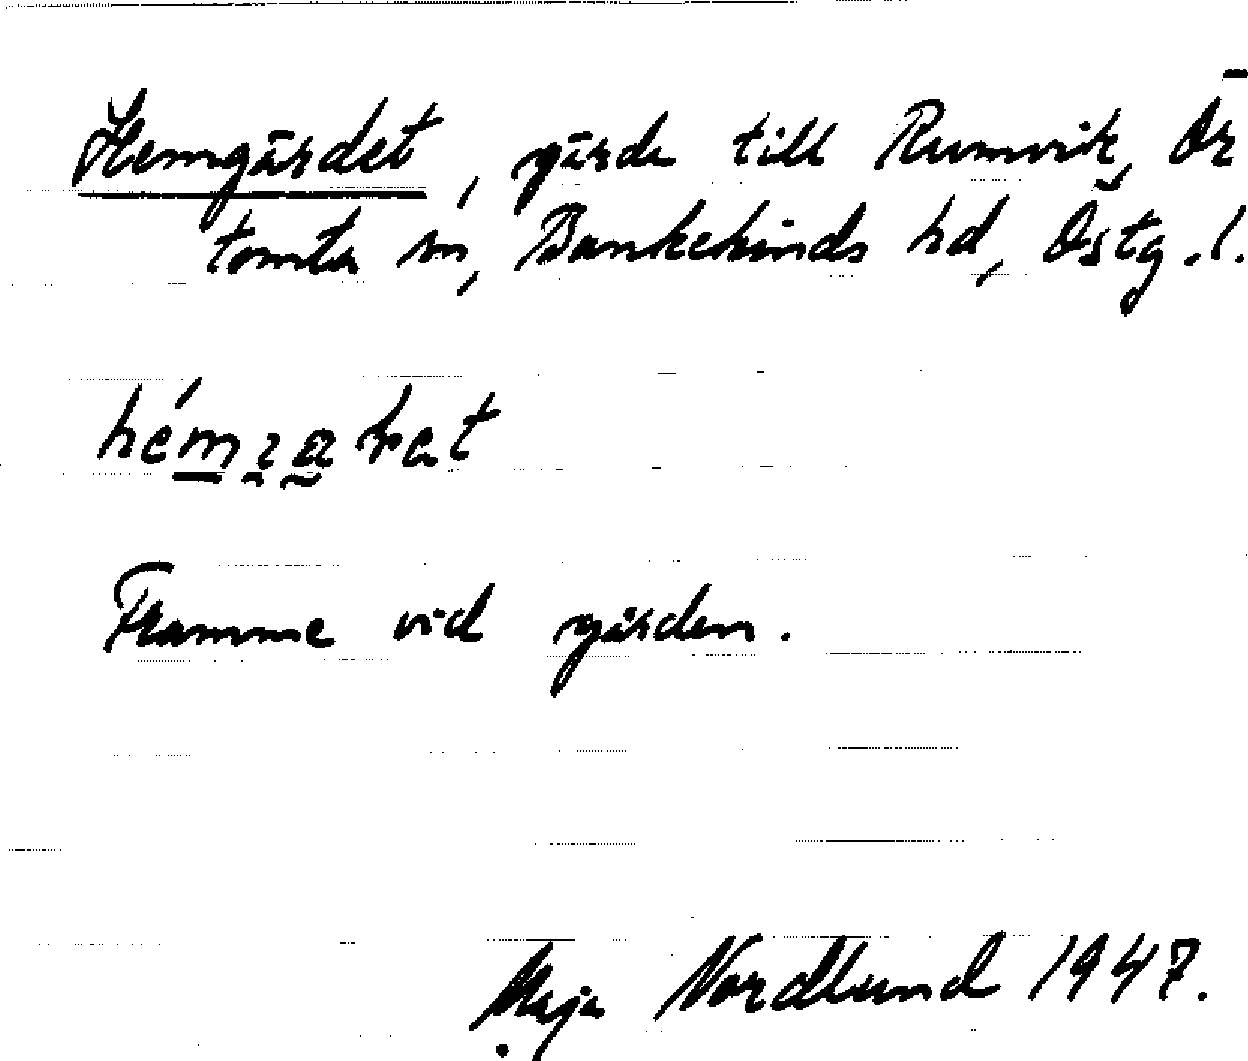 Hemgärdet, gärde till Rumvik, Ör
tomta sn, Bankekinds hd, Östg. l.
Framme vid gården.
Maja Nordlund 1947.